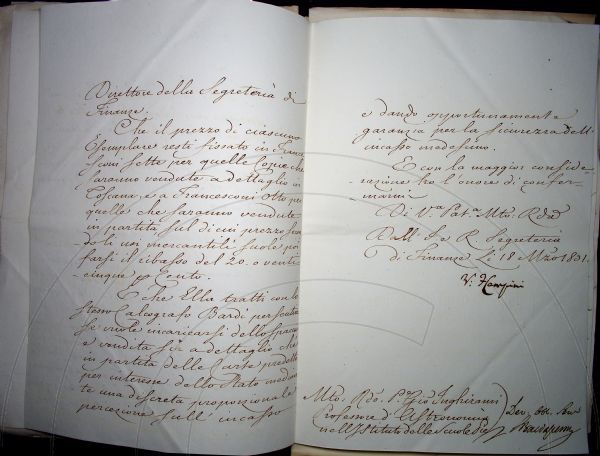 Direttore della Segreteria di
Finanze.
Che il prezzo di ciascuno
Esemplare resti fissato in Fran=
=cesconi sette per quelle Copie che
saranno vendute a dettaglio in
Toscana, e a Francesconi otto per
quelle che saranno vendute
in partita sul di cui prezzo
gli usi mercantili suole poi
farsi il ribasso del 20. o venti
=cinque p Cento.
E che Ella tratti con lo
stesso Calcografo Bardi per
se vuole incaricarsi dello spaccio
e vendita sia a dettaglio che
in partita delle Carte predette
per interesse dello Stato median
te una discreta proporzionale
percezione sull' incasso
e dando opportunamente
garanzia per la sicurezza dell'
incasso medesimo.
E con la maggior conside=
=razione ho l'onore di confer=
=marmi
Di V.ra Pat.tà Mto. Rda
Dall' I. e R. Segreteria
di Finanze Li 18 Mzo 1831.
Mto. Rdo. P. Gio Inghirami
Professore d'Astronomia
nell'Istituto delle Scuole Pie